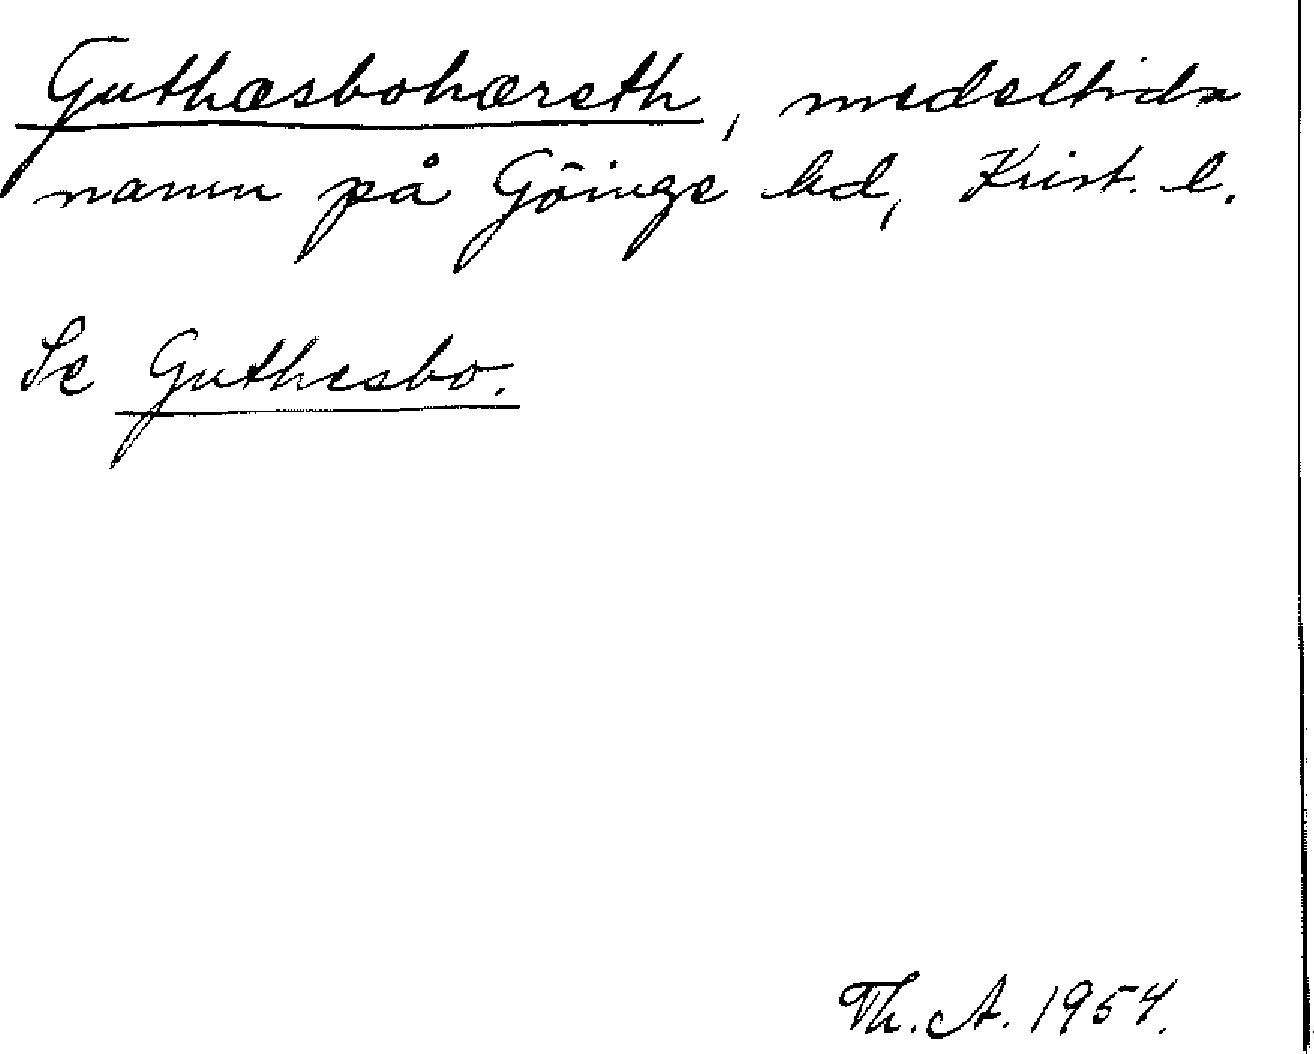 Guthæsbohæreth, medeltida
namn på Göinge hd, Krist. l.
Se Guthesbo.
Th. A. 1954.